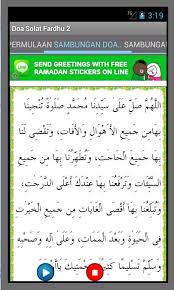 3:19
Doa Solat Fardhu 2
PERMULAAN SAMBUNGAN DOA.. SAMBUNGAN
SEND GREETINGS WITH FREE
RAMADAN STICKERS ON LINE
اَللّٰهُمَّ صَلِّ عَلَى سَيِّدِنَا مُحَمَّدٍ صَلَوةً تُنْجِيْنَا
بِهَامِنْ جَمِيْعِ الْأَهْوَالِ وَالْآفَاتِ، وَتَقْضِى لَنَا
بِهَا جَمِيْعَ الْحَاجَاتِ، وَتُطَهِّرُنَا بِهَا مِنْ جَمِيْعِ
السَّيِّئَاتِ وَتَرْفَعُنَا بِهَا عِنْدَكَ أَعْلَى الدَّرَجَتِ،
وَتُبَلِّغُنَا بِهَا أَقْصَى الْغَايَاتِ مِنْ جَمِيْعِ الْخَيْرَتِ
فِى الْحَيَوةِ وَبَعْدَ الْمَمَاتِ، وَعَلَى آلِهِ وَصَحْبِهِ
وَسَلِّمْ تَسْلِيْمًا كَثِيْرًا